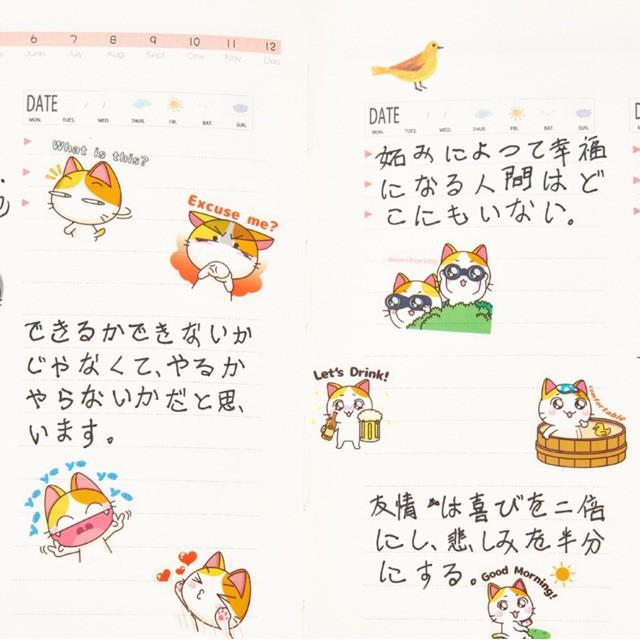 6 7 8 9 10 11 12
June. July. Aug. Sept. Nov. Dec.
DATE / /
MON. TUES. THUR. FRI. SAT. SUN.
What is this?
Excuse me?
できるかできないか
じゃなくて、やるか
やらないかだと思、
います。
yo yo yo yo yo
DATE / /
MON. TUES. THUR. FRI. SAT. SUN.
妬みによって幸福
になる人間はど
こにもいない。
monitoring
Let's Drink!
comfortable
友情は喜びを二倍
にし、悲しみを半分
にする。
Good Morning!